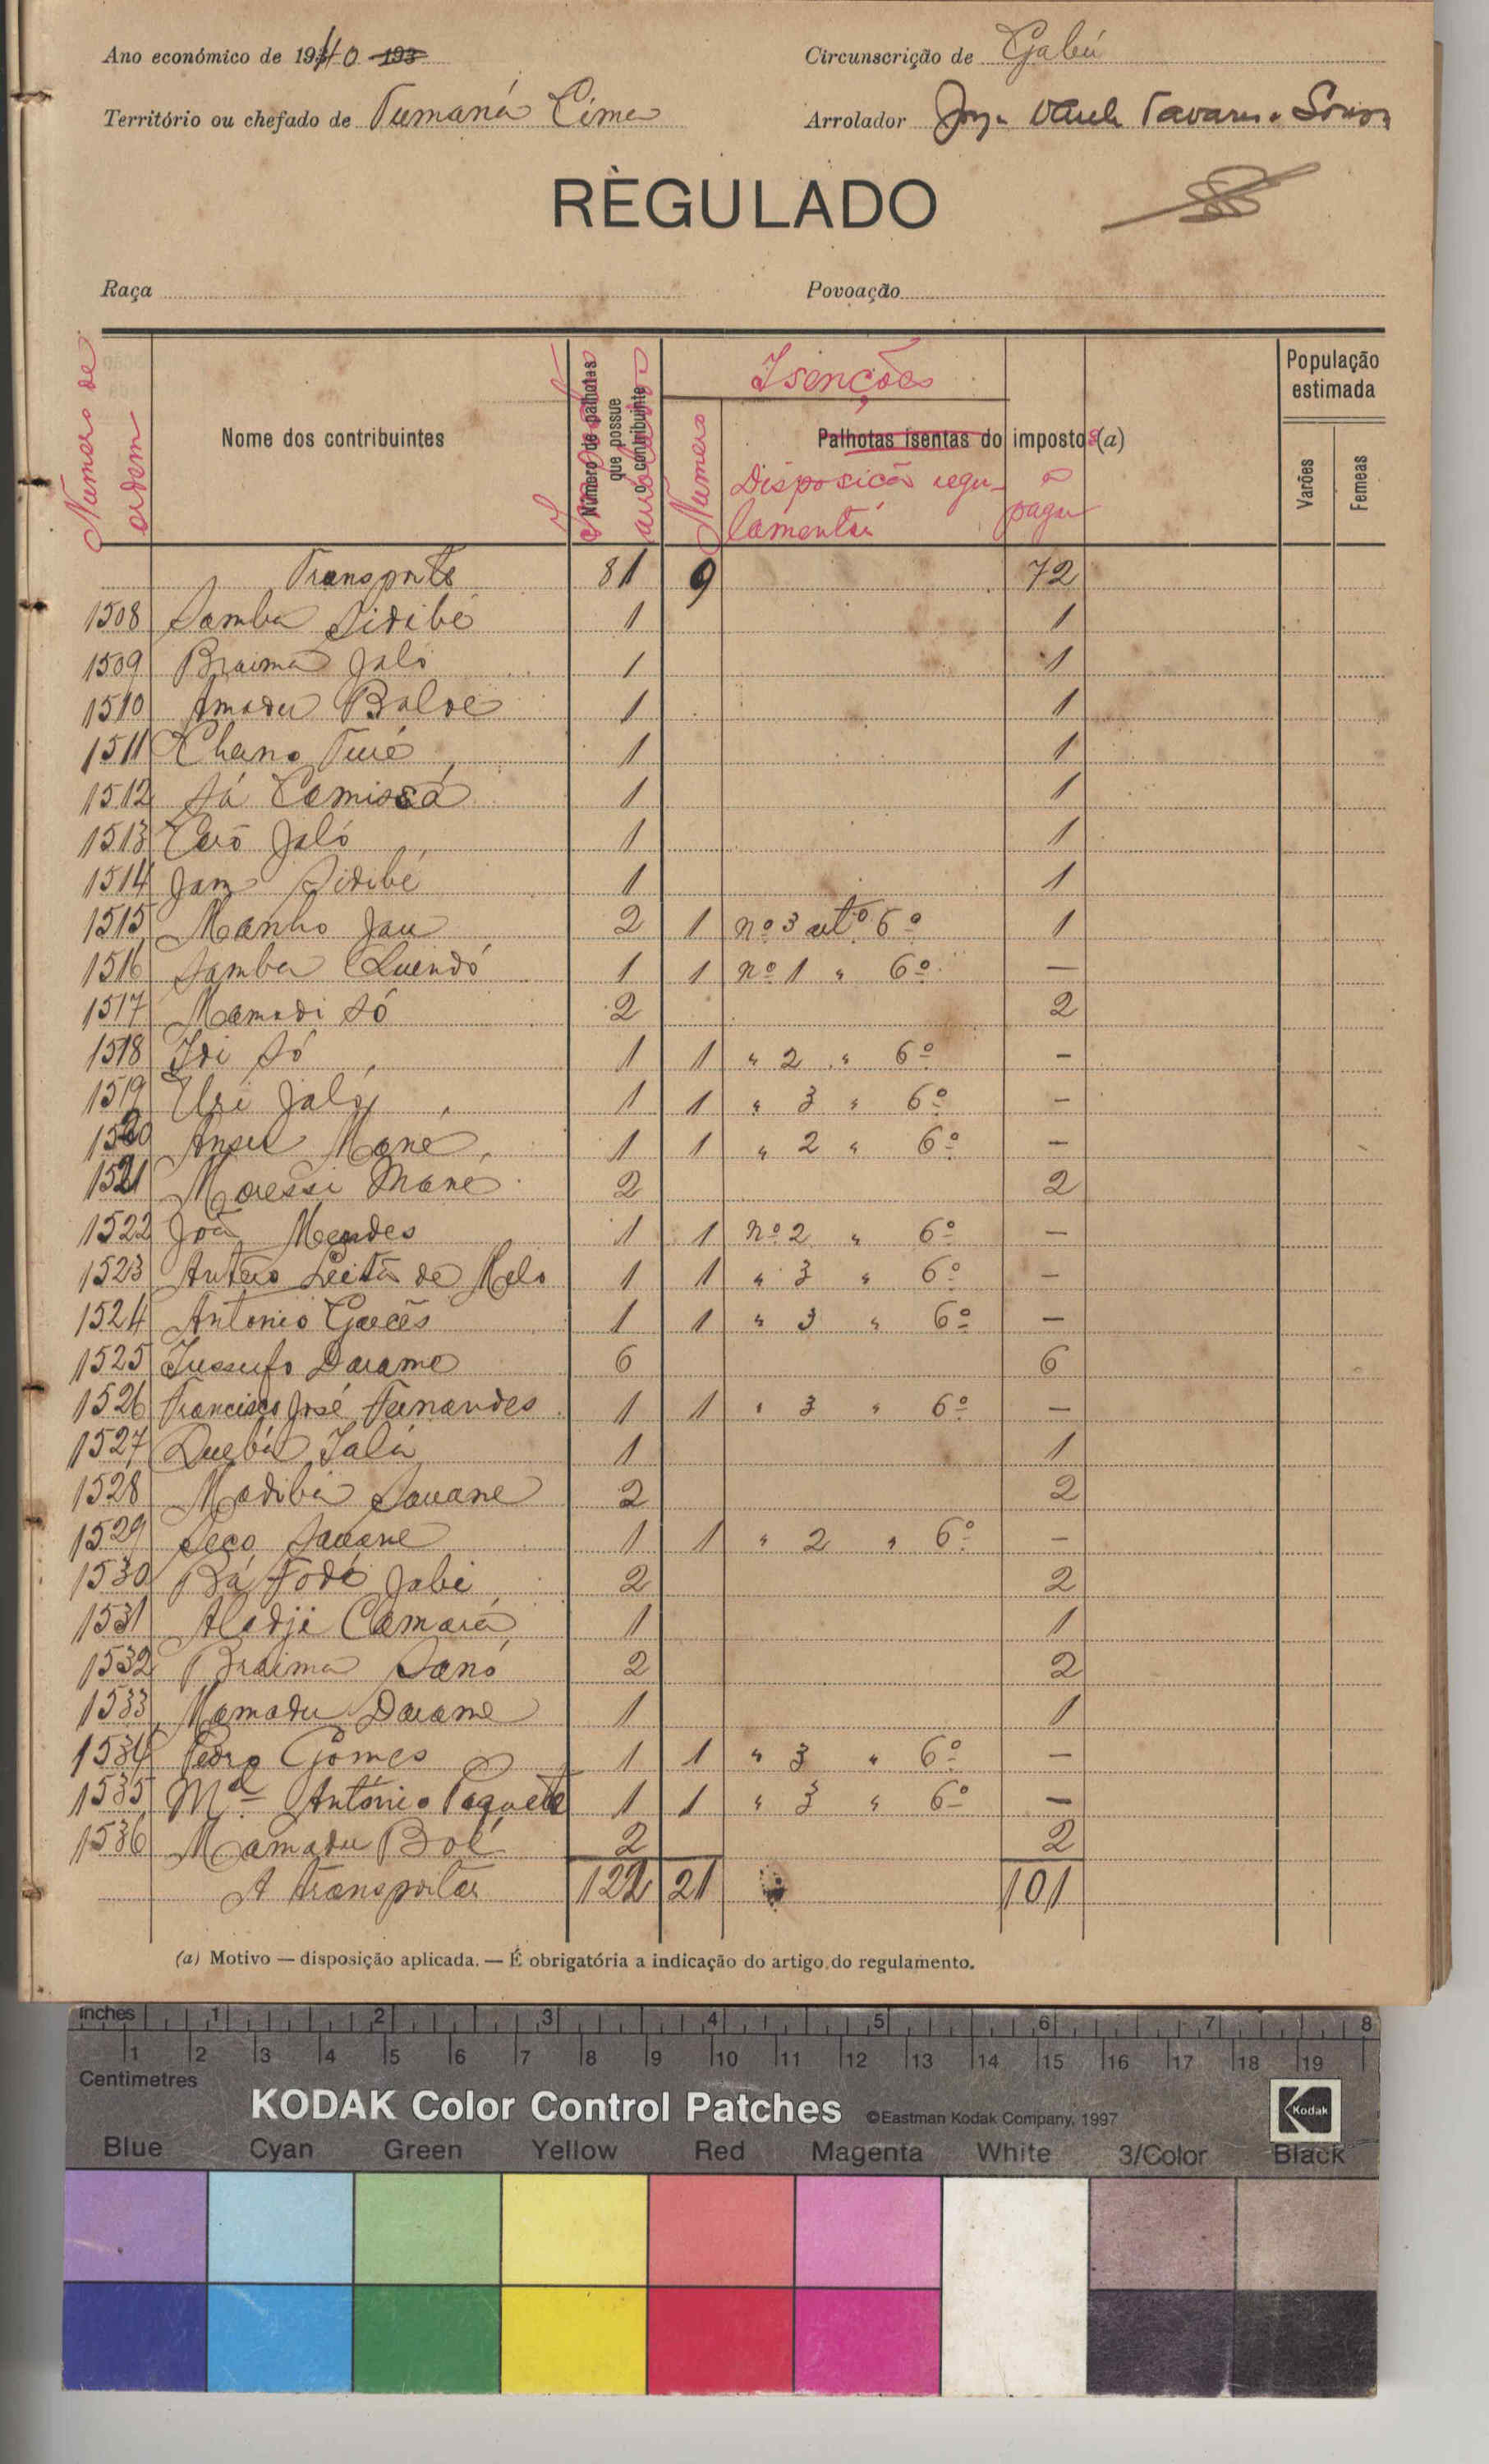 Ano económico de 1940 193
Circunscrição de Gabú
Território ou chefado de Tumaná Cima
Arrolador Tavares Sousa
RÈGULADO
Raça
Povoação
Número de ordem
Nome dos contribuintes
Número de palhotas que possue o contribuinte
Isenções
Numero
Palhotas isentas do impostos (a)
Disposição regulamentar
a pagar
População estimada
Varões
Femeas
Transporte 81 9 72
1508 Samba Sidibé 1 1
1509 Braima Jaló 1 1
1510 Amadu Balde 1 1
1511 Cherno Turé 1 1
1512 Sá Camissá 1 1
1513 Jaló 1 1
1514 Sidibé 1 1
1515 Manho Jau 2 1 nº 3 artº 6º 1
1516 Samba Quendó 1 1 nº 1 " 6º —
1517 Mamadi Só 2 2
1518 Idi Só 1 1 " 2 " 6º —
1519 Jaló 1 1 " 3 " 6º —
1520 Ansu Mané 1 1 " 2 " 6º —
1521 Mané 2 2
1522 João Mendes 1 1 nº 2 " 6º —
1523 Antero Leitão de Melo 1 1 " 3 " 6º —
1524 Antonio Garcês 1 1 " 3 " 6º —
1525 Jussufo Darame 6 6
1526 Francisco José Fernandes 1 1 " 3 " 6º —
1527 Quebá Jalá 1 1
1528 Madiba Sauane 2 2
1529 Seco Sauane 1 1 " 2 " 6º —
1530 Bá Fodé Jabi 2 2
1531 Aladje Camará 1 1
1532 Braima Sanó 2 2
1533 Mamadu Darame 1 1
1534 Pedro Gomes 1 1 " 3 " 6º —
1535 Mel António Paquete 1 1 " 3 " 6º —
1536 Mamadu Boé 2 2
A transportar 122 21 101
(a) Motivo — disposição aplicada. — É obrigatória a indicação do artigo do regulamento.
inches 1 2 3 4 5 6 7 8
1 2 3 4 5 6 7 8 9 10 11 12 13 14 15 16 17 18 19
Centimetres
KODAK Color Control Patches ©Eastman Kodak Company, 1997 Kodak
Blue Cyan Green Yellow Red Magenta White 3/Color Black